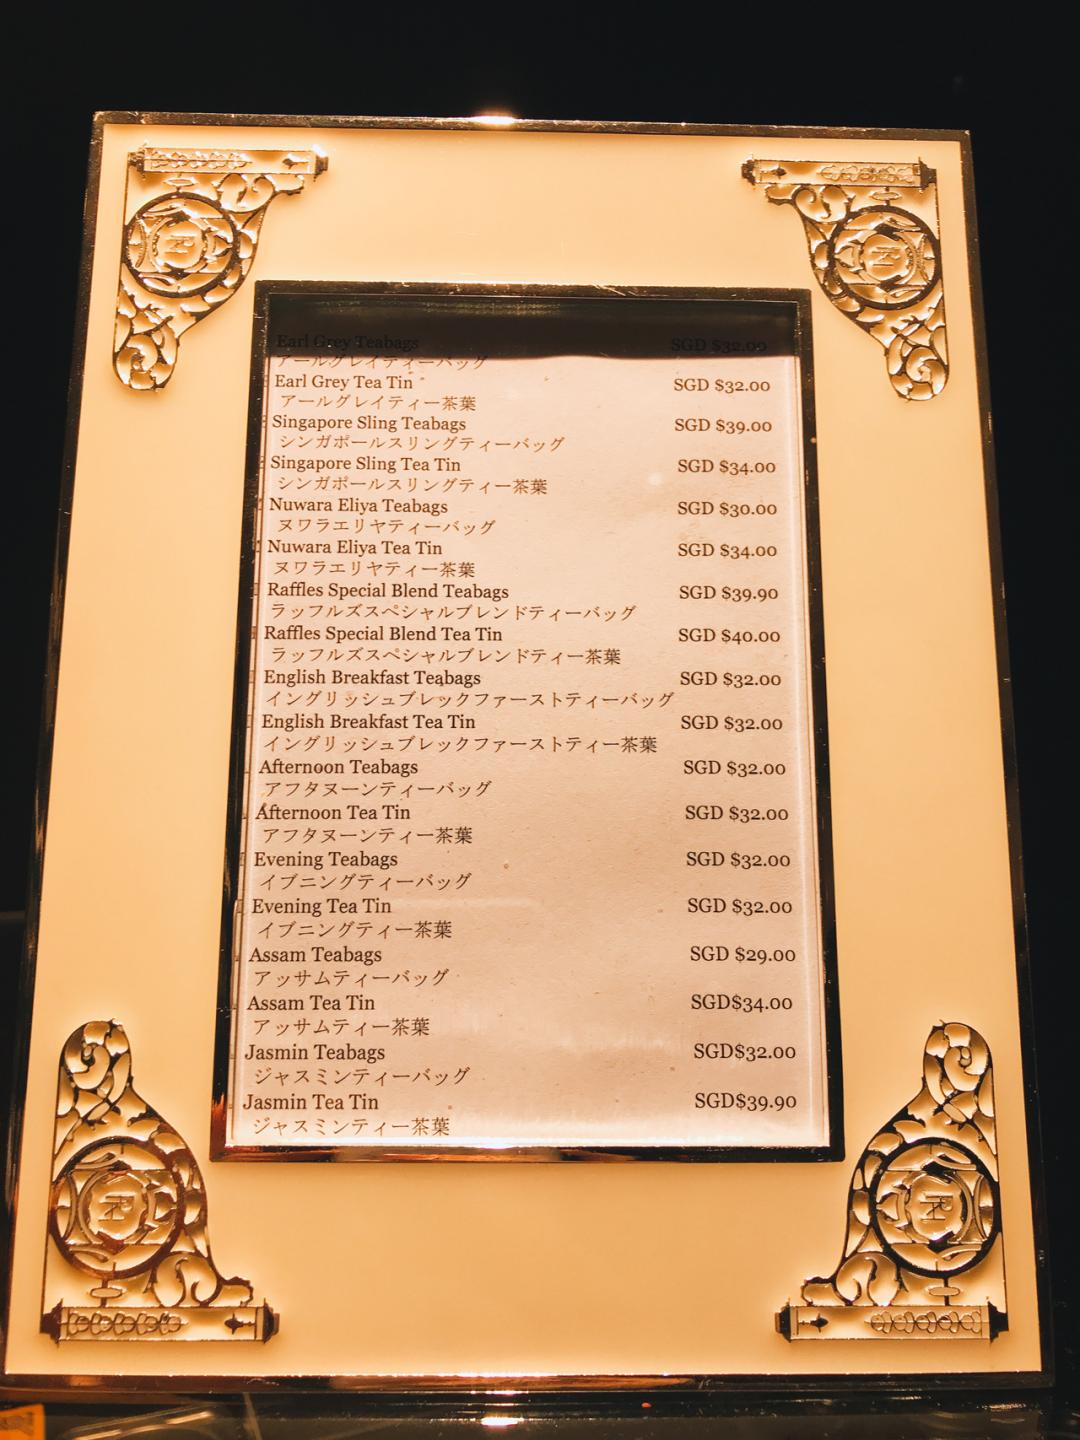 Earl Grey Teabags SGD $32.00
アールグレイティーバッグ
Earl Grey Tea Tin SGD $32.00
アールグレイティー茶葉
Singapore Sling Teabags SGD $39.00
シンガポールスリングティーバッグ
Singapore Sling Tea Tin SGD $34.00
シンガポールスリングティー茶葉
Nuwara Eliya Teabags SGD $30.00
ヌワラエリヤティーバッグ
Nuwara Eliya Tea Tin SGD $34.00
ヌワラエリヤティー茶葉
Raffles Special Blend Teabags SGD $39.90
ラッフルズスペシャルブレンドティーバッグ
Raffles Special Blend Tea Tin SGD $40.00
ラッフルズスペシャルブレンドティー茶葉
English Breakfast Teabags SGD $32.00
イングリッシュブレックファーストティーバッグ
English Breakfast Tea Tin SGD $32.00
イングリッシュブレックファーストティー茶葉
Afternoon Teabags SGD $32.00
アフタヌーンティーバッグ
Afternoon Tea Tin SGD $32.00
アフタヌーンティー茶葉
Evening Teabags SGD $32.00
イブニングティーバッグ
Evening Tea Tin SGD $32.00
イブニングティー茶葉
Assam Teabags SGD $29.00
アッサムティーバッグ
Assam Tea Tin SGD$34.00
アッサムティー茶葉
Jasmin Teabags SGD$32.00
ジャスミンティーバッグ
Jasmin Tea Tin SGD$39.90
ジャスミンティー茶葉